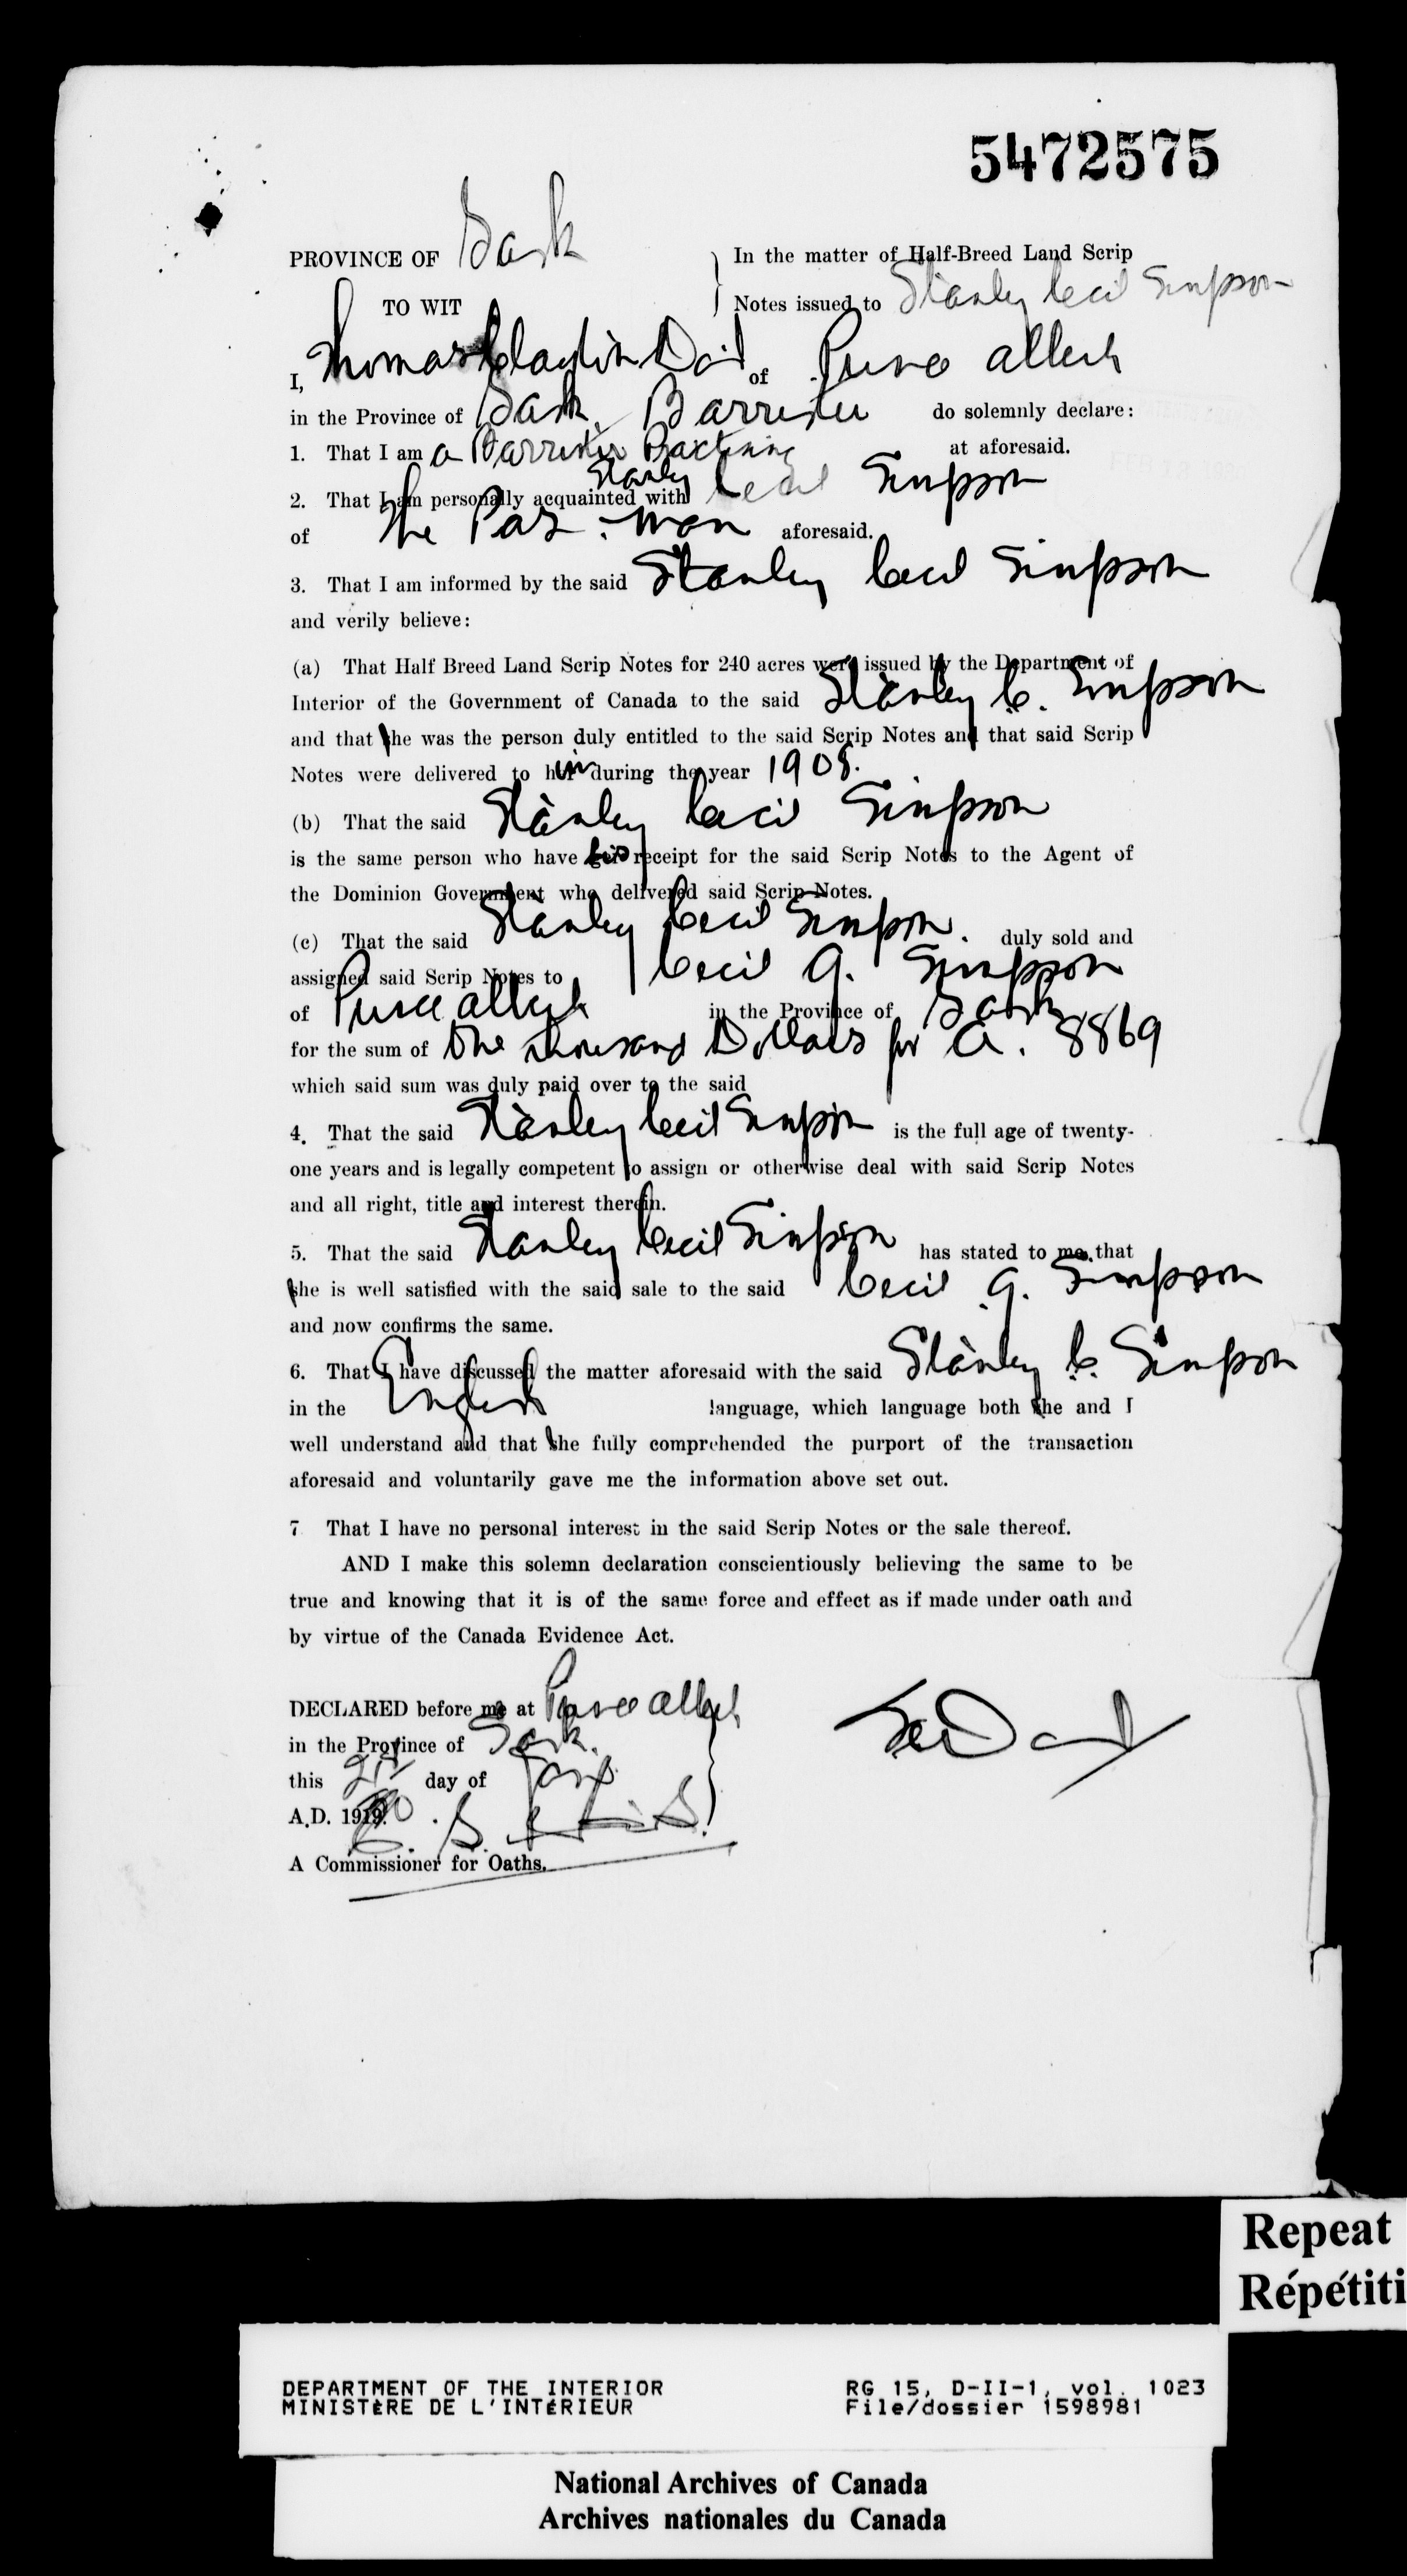 5472575
PROVINCE OF Sask
TO WIT
In the matter of Half-Breed Land Scrip
Notes issued to Stanley Cecil Simpson
I, Thomas Clayton Davis of Prince Albert
in the Province of Sask. Barrister do solemnly declare:
1. That I am a Barrister Practising at aforesaid.
2. That I am personally acquainted with Stanley Cecil Simpson
of The Pas. Man aforesaid.
3. That I am informed by the said Stanley Cecil Simpson
and verily believe:
(a) That Half Breed Land Scrip Notes for 240 acres were issued by the Department of
Interior of the Government of Canada to the said Stanley C. Simpson
and that he was the person duly entitled to the said Scrip Notes and that said Scrip
Notes were delivered to him during the year 1908.
(b) That the said Stanley Cecil Simpson
is the same person who have his receipt for the said Scrip Notes to the Agent of
the Dominion Government who delivered said Scrip Notes.
(c) That the said Stanley Cecil Simpson. duly sold and
assigned said Scrip Notes to Cecil G. Simpson
of Prince Albert in the Province of Sask
for the sum of One Thousand Dollars for A. 8869
which said sum was duly paid over to the said
4. That the said Stanley Cecil Simpson is the full age of twenty-
one years and is legally competent to assign or otherwise deal with said Scrip Notes
and all right, title and interest therein.
5. That the said Stanley Cecil Simpson has stated to me that
he is well satisfied with the said sale to the said Cecil G. Simpson
and now confirms the same.
6. That I have discussed the matter aforesaid with the said Stanley C. Simpson
in the English language, which language both he and I
well understand and that he fully comprehended the purport of the transaction
aforesaid and voluntarily gave me the information above set out.
7 That I have no personal interest in the said Scrip Notes or the sale thereof.
AND I make this solemn declaration conscientiously believing the same to be
true and knowing that it is of the same force and effect as if made under oath and
by virtue of the Canada Evidence Act.
DECLARED before me at Prince Albert
in the Province of Sask.
this 21st day of Jany.
A.D. 1920
A Commissioner for Oaths.
Repeat
Répétiti
DEPARTMENT OF THE INTERIOR
MINISTÈRE DE L'INTÉRIEUR
RG 15, D-II-1, vol. 1023
File/dossier 1598981
National Archives of Canada
Archives nationales du Canada